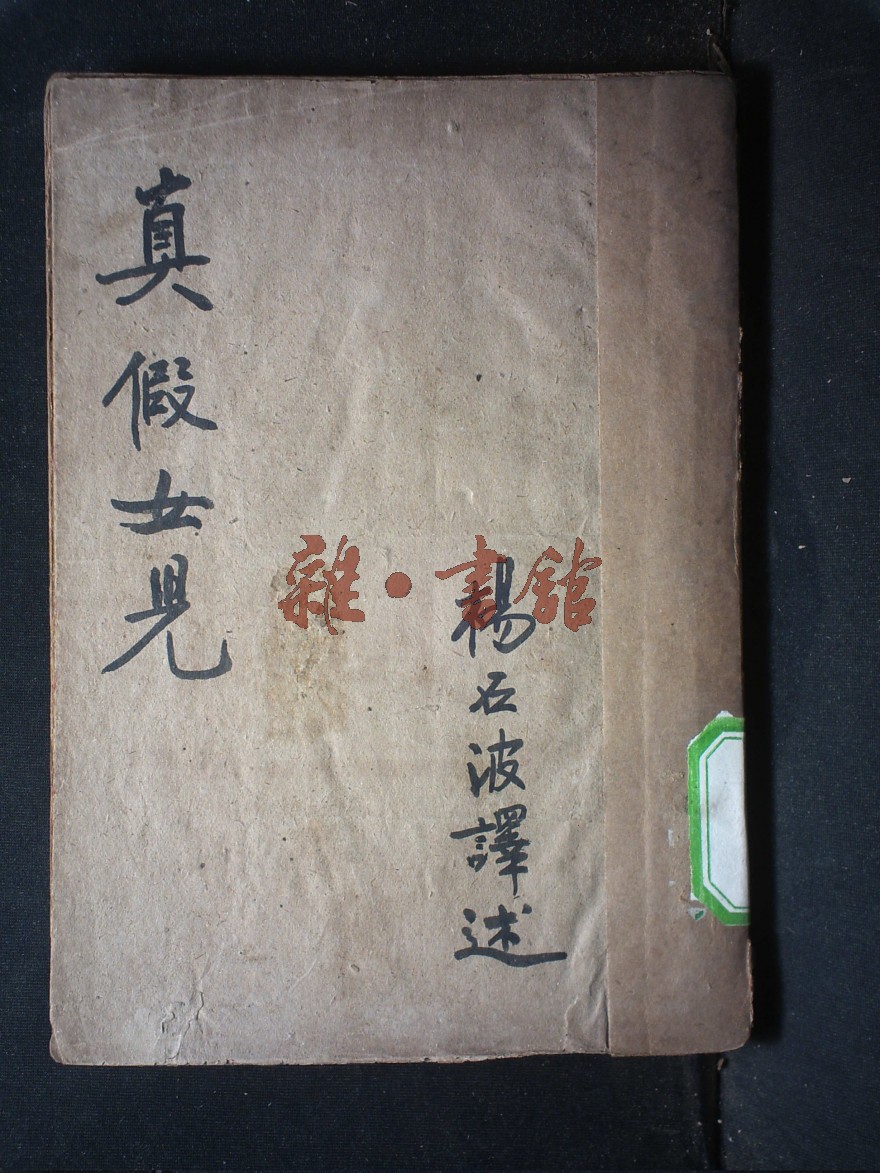 真假女兒
楊石波譯述
雜·書館